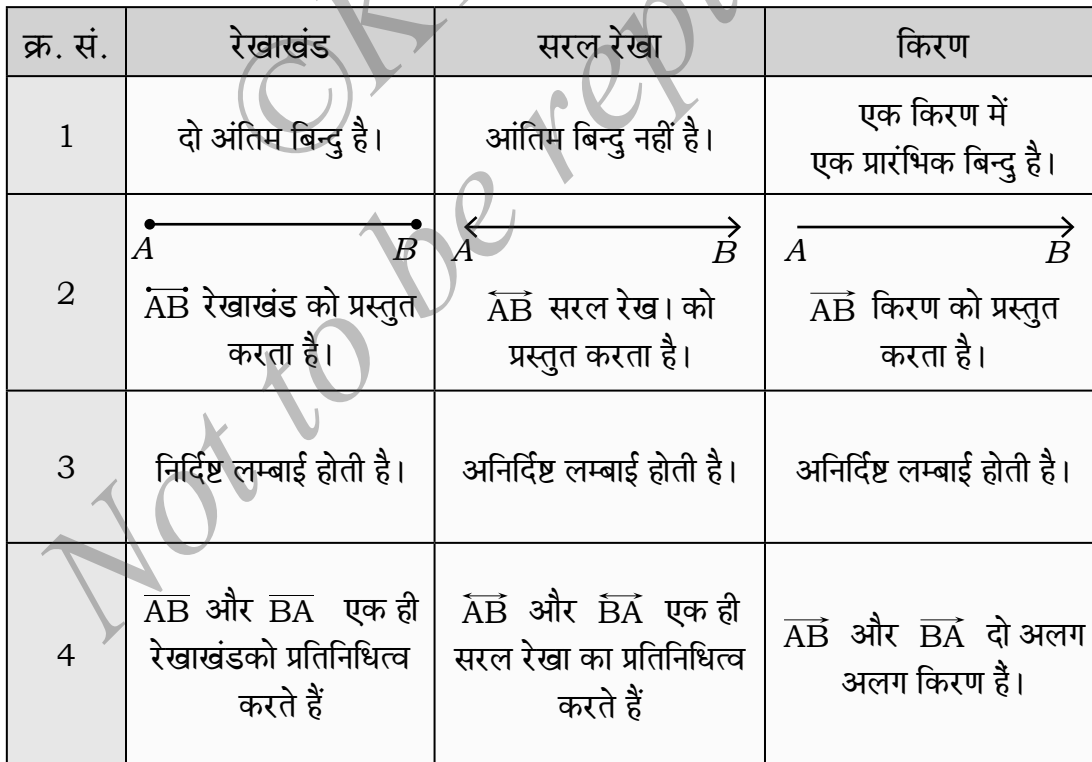 क्र. सं. रेखाखंड सरल रेखा किरण
1 दो अंतिम बिन्दु है। आंतिम बिन्दु नहीं है। एक किरण में
एक प्रारंभिक बिन्दु है।
A B A B A B
2 AB रेखाखंड को प्रस्तुत
करता है।
AB सरल रेख। को
प्रस्तुत करता है।
AB किरण को प्रस्तुत
करता है।
3 निर्दिष्ट लम्बाई होती है। अनिर्दिष्ट लम्बाई होती है। अनिर्दिष्ट लम्बाई होती है।
4 AB और BA एक ही
रेखाखंडको प्रतिनिधित्व
करते हैं
AB और BA एक ही
सरल रेखा का प्रतिनिधित्व
करते हैं
AB और BA दो अलग
अलग किरण हैं।
©K
Not to be rep